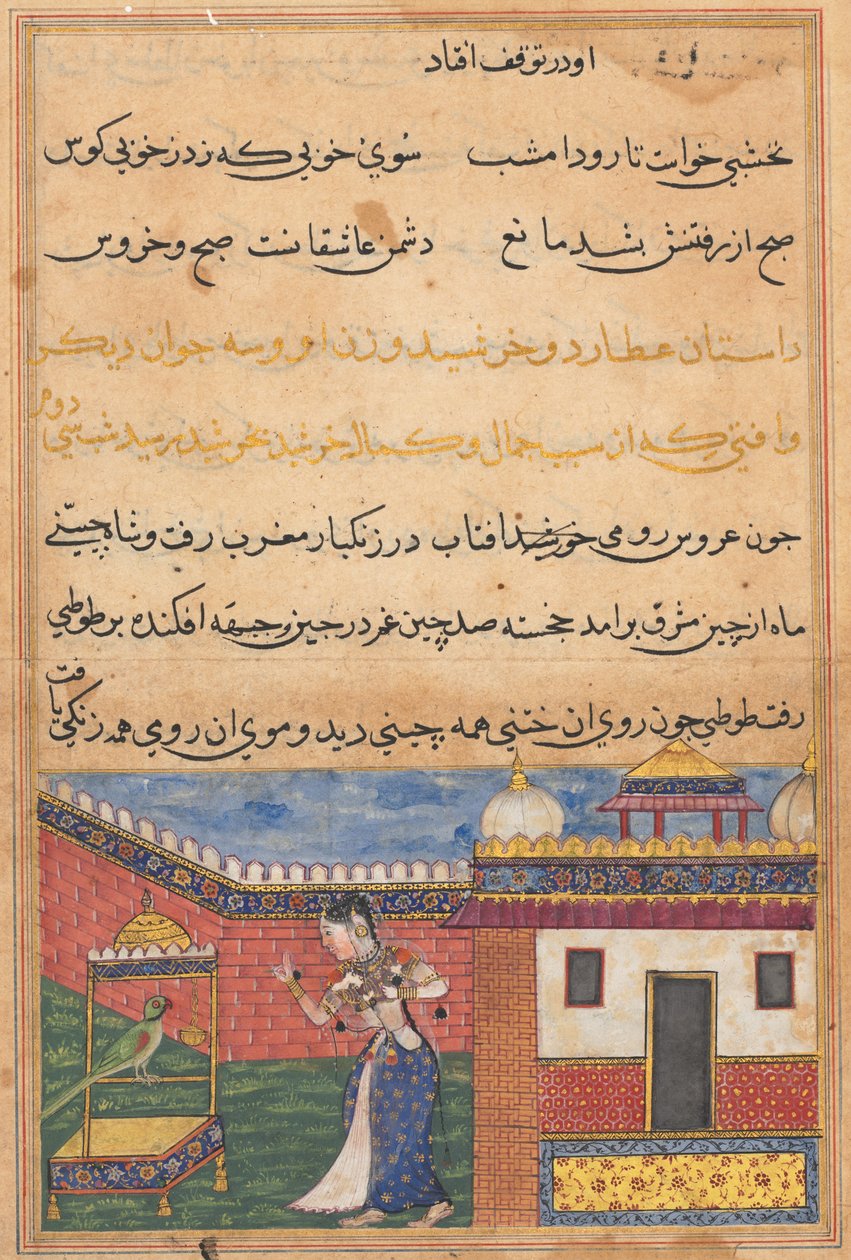 او در توقف افتاد
نخشبي خواست تا رود امشب سوي خوبي كه زد ز خوبي كوس
صبح از رفتنش بشد مانع دشمن عاشقانست صبح و خروس
داستان عطارد و خرشيد و زن او و سه جوان ديكر
وافتي كه از سبب جمال و كمال خرشيد بخرشيد رسيد شب سي دوم
جون عروس رومي افتاب در زنكبار مغرب رفت و شاه چيني
ماه از چين مشرق برامد خجسته صد چين غم در جبين جبهه افكنده بر طوطي
رفت طوطي جون روي ان ختني همه چيني ديد و موي ان رومي همه زنكي يافت